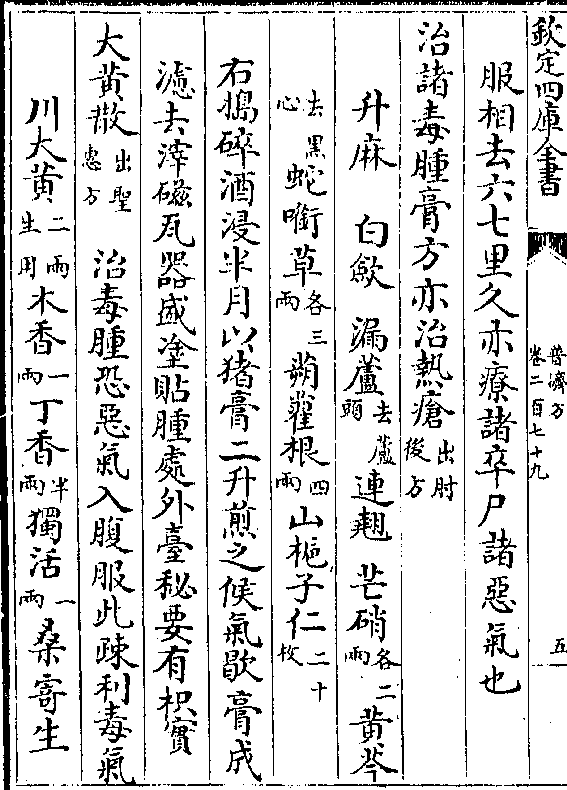 欽定四庫全書
普濟方
卷二百七十九
五
服相去六七里久亦療諸卒尸諸惡氣也
治諸毒腫膏方亦治熱瘡出肘後方
升麻 白歛 漏蘆去蘆頭 連翹 芒硝各二兩 黄芩
去黑心 蛇啣草各三兩 蒴藋根四兩 山梔子仁二十枚
右搗碎酒浸半月以猪膏二升煎之候氣歇膏成
濾去滓磁瓦器盛塗貼腫處外臺秘要有枳實
大黄散出聖惠方 治毒腫恐惡氣入腹服此疎利毒氣
川大黄二兩生用 木香一兩 丁香半兩 獨活一兩 桑寄生